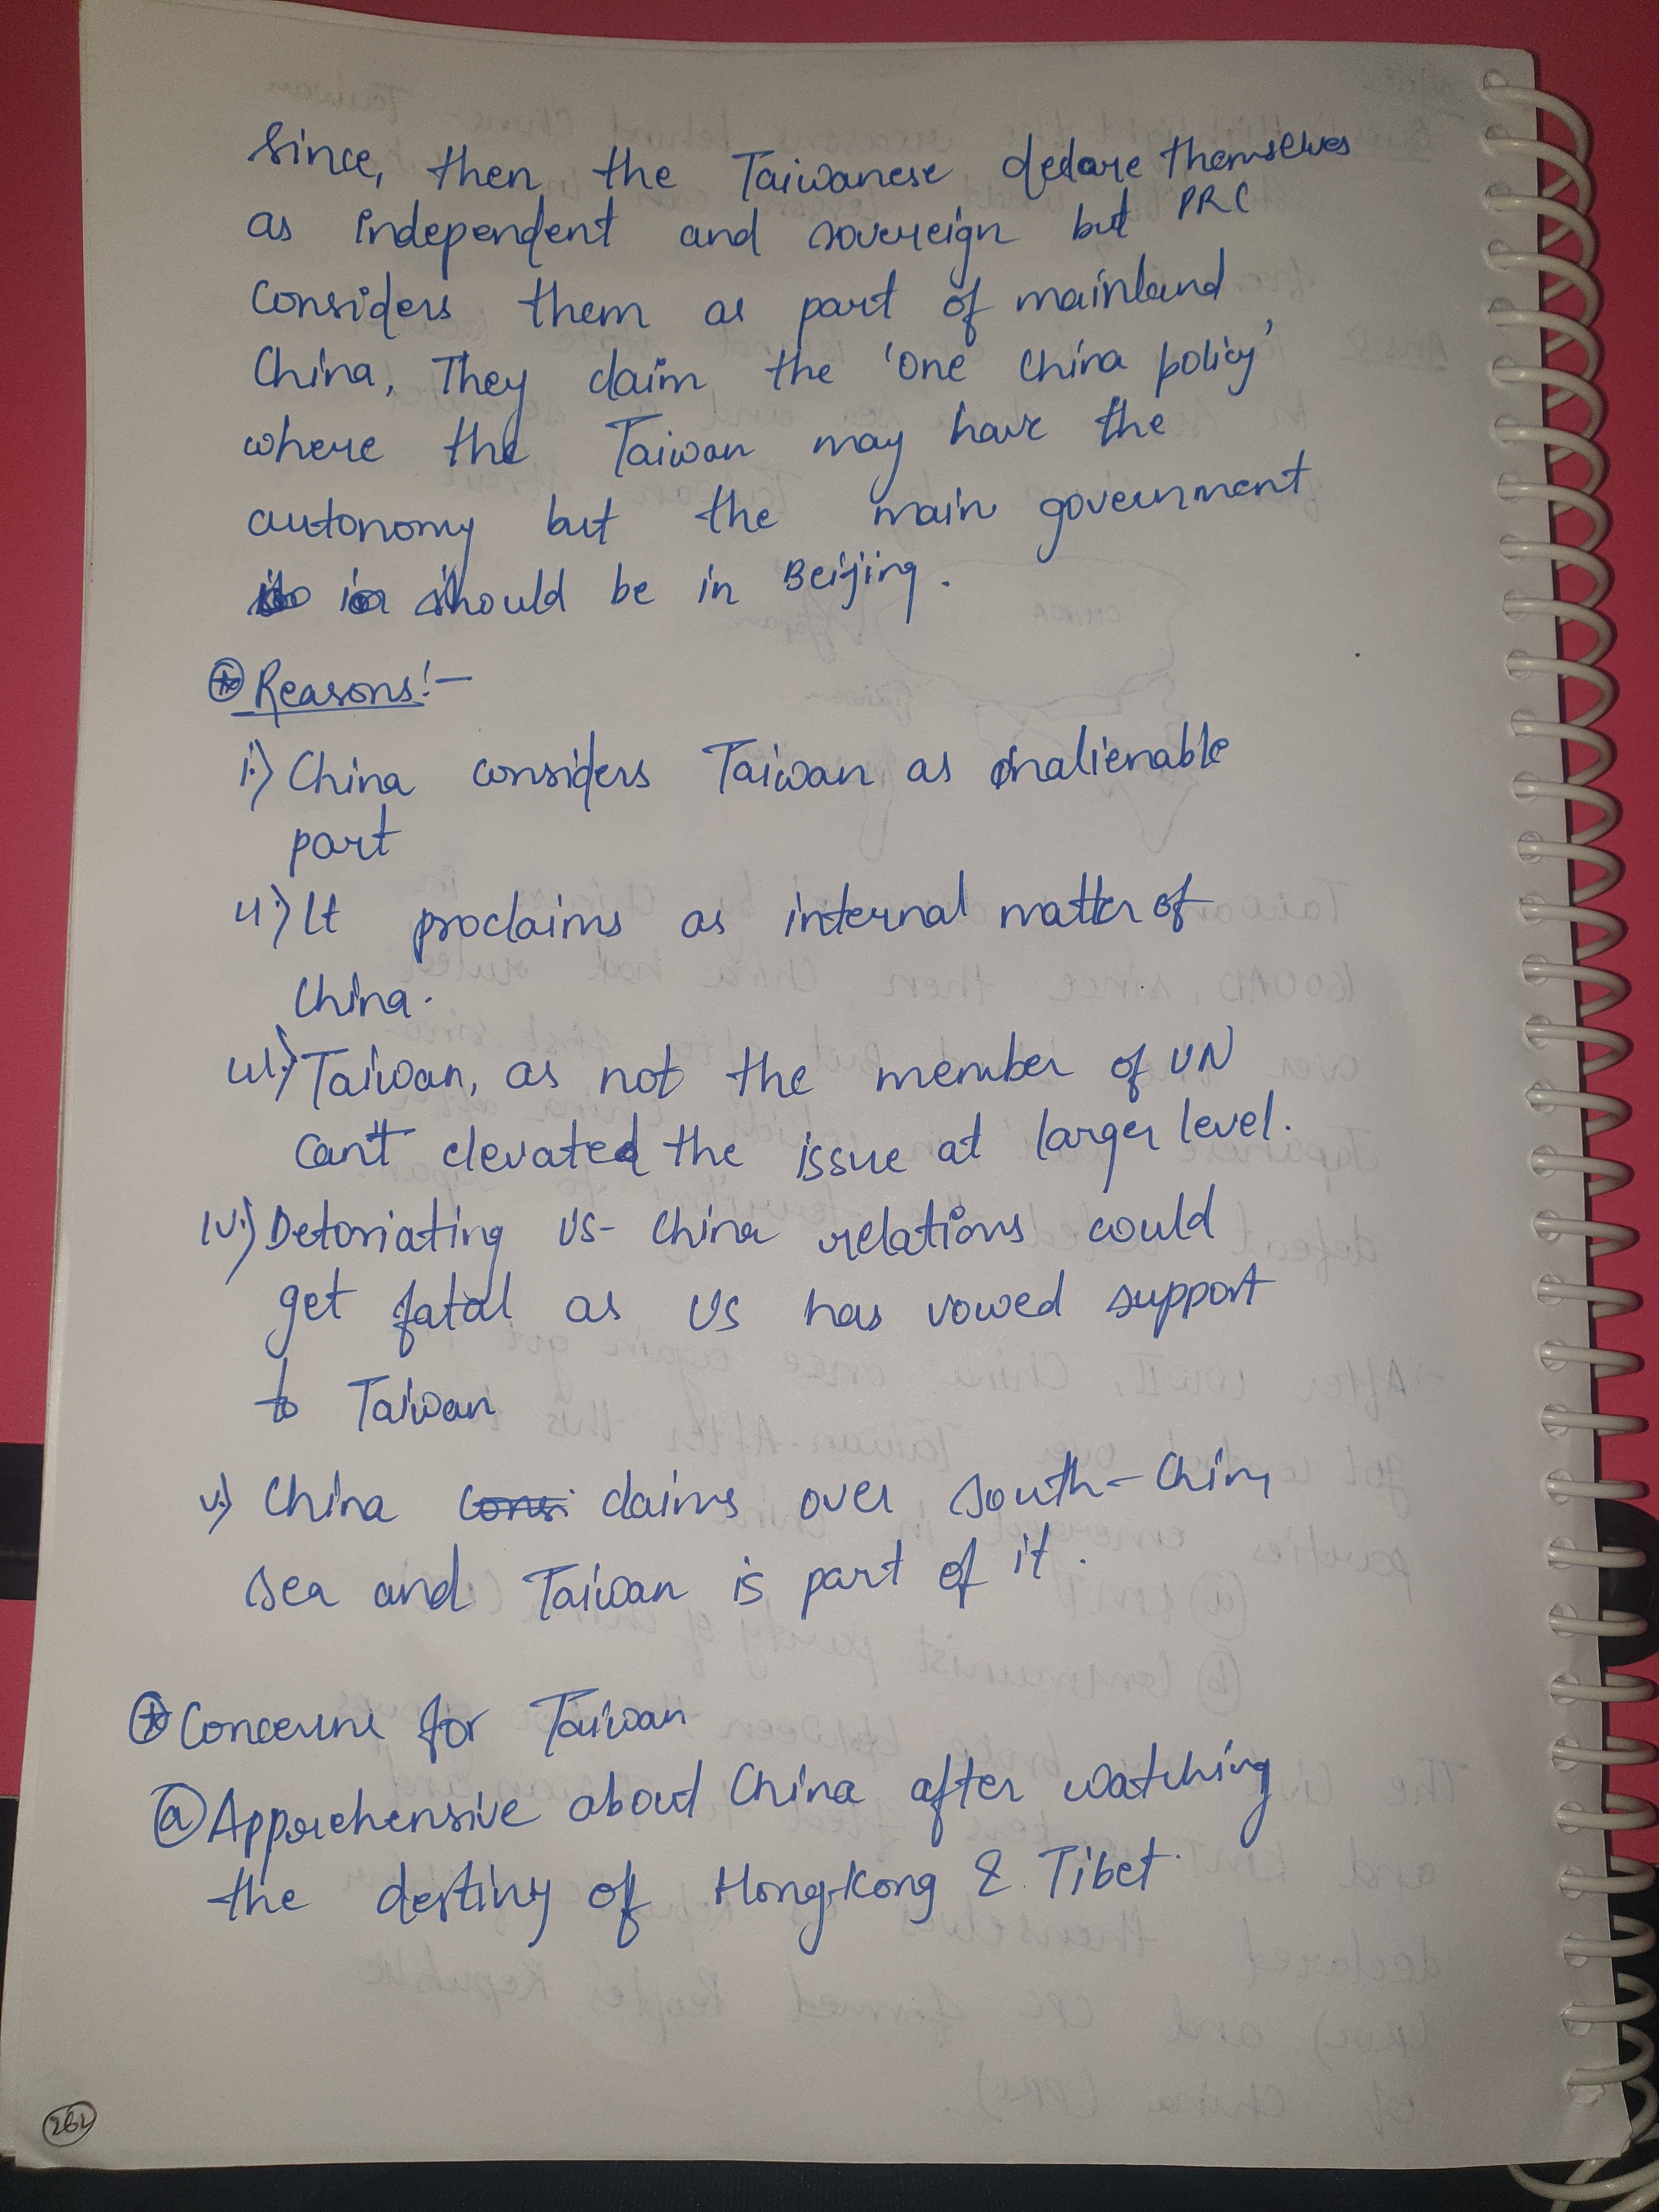 Since, then the Taiwanese declare themselves
as independent and sovereign but PRC
considers them as part of mainland
China, They claim the 'One China policy'
where the Taiwan may have the
autonomy but the main government
should be in Beijing.
Reasons:-
i.) China considers Taiwan as inalienable
part
ii.) It proclaims as internal matter of
China.
iii.) Taiwan, as not the member of UN
can't elevated the issue at larger level.
iv.) Detoriating US- China relations could
get fatal as US has vowed support
to Taiwan
v.) China consi claims over South-China
Sea and Taiwan is part of it.
Concerns for Taiwan
(a) Apprehensive about China after watching
the destiny of HongKong & Tibet